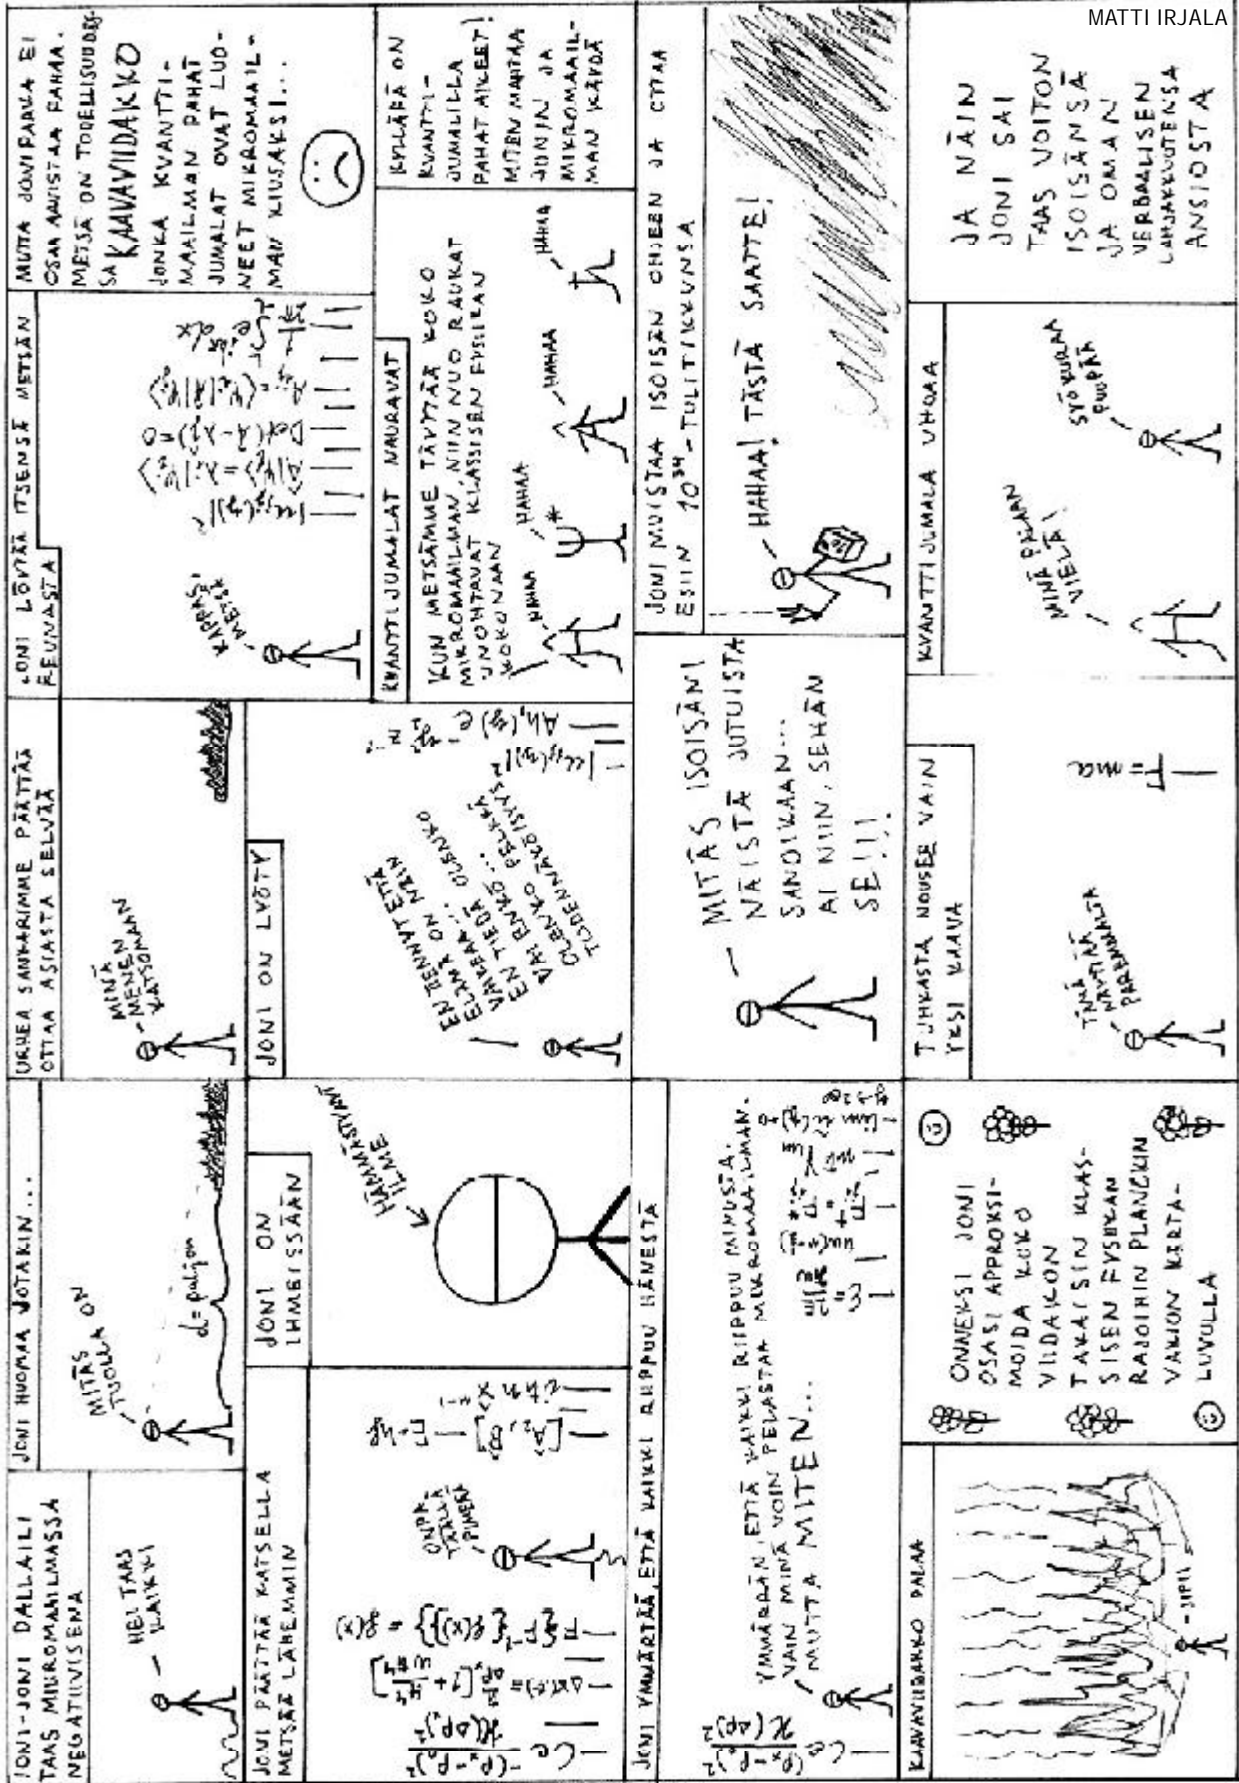 MATTI IRJALA
IONI-JONI DALLAILI
TAAS MIKROMAAILMASSA
NEGATIIVISENA
HEI TAAS
KAIKKI
JONI HUOMAA JOTAKIN...
MITÄS
TUOLLA ON
d = paljon
URHEA SANKARIMME PÄÄTTÄÄ
OTTAA ASIASTA SELVÄÄ
MINÄ
MENEN
KATSOMAN
IONI LÖYTÄÄ ITSENSÄ METSÄN
REUNASTA
KAPPAS!
METSÄ
Â|Ψi> = λi|Ψi>
Det(Â-λÎ)=0
MUTTA JONIPARKA EI
OSAA AAVISTAA PAHAA.
METSÄ ON TODELLISUUDES-
SA KAAVAVIIDAKKO
JONKA KVANTTI-
MAAILMAN PAHAT
JUMALAT OVAT LUO-
NEET MIKROMAAIL-
MAN KIUSAKSI...
JONI PÄÄTTÄÄ KATSELLA
METSÄÄ LÄHEMMIN
F{F⁻¹{f(x)}} = f(x)
ONPA
TÄÄLLÄ
PIMEÄÄ
JONI ON
IHMEISSÄÄN
HÄMMÄSTYNYT
ILME
JONI ON LYÖTY
EN TIENNYT ETTÄ
ELÄMÄ ON NÄIN
VAIKEAA... OLENKO
VAI ENKÖ...
EN TIEDÄ
OLENKO PELKKÄ
TODENNÄKÖISYYS
KVANTTIJUMALAT NAURAVAT
KUN METSÄMME TÄYTTÄÄ KOKO
MIKROMAAILMAN, NIIN NUO RAUKAT
UNOHTAVAT KLASSISEN FYSIIKAN
KOKONAAN
HAHAA
HAHAA
HAHAA
HAHAA
KYLLÄPÄ ON
KVANTTI-
JUMALILLA
PAHAT AIKEET!
MITEN MAHTAA
JONIN JA
MIKROMAAIL-
MAN KÄYDÄ
JONI YMMÄRTÄÄ, ETTÄ KAIKKI RIIPPUU HÄNESTÄ
YMMÄRRÄN, ETTÄ KAIKKI RIIPPUU MINUSTA.
VAIN MINÄ VOIN PELASTAA MIKROMAAILMAN.
MUTTA MITEN...
MITÄS ISOISÄNI
NÄISTÄ JUTUISTA
SANOIKAAN...
AI NIIN, SEHÄN
SE!!!
JONI MUISTAA ISOISÄN OHJEEN JA OTTAA
ESIIN 10³⁴-TULITIKKUNSA
HAHAA! TÄSTÄ SAATTE!
KAAVAVIIDAKKO PALAA
JIPII
ONNEKSI JONI
OSASI APPROKSI-
MOIDA KOKO
VIIDAKON
TAKAISIN KLAS-
SISEN FYSIIKAN
RAJOIHIN PLANCKIN
VAKION KERTA-
LUVULLA
TUHKASTA NOUSEE VAIN
YKSI KAAVA
TÄMÄ
NÄYTTÄÄ
PAREMMALTA
F=ma
KVANTTIJUMALA UHOAA
MINÄ PALAAN
VIELÄ!
SYÖ KURAA
PUUPÄÄ
JA NÄIN
JONI SAI
TAAS VOITON
ISOISÄNSÄ
JA OMAN
VERBAALISEN
LAHJAKKUUTENSA
ANSIOSTA